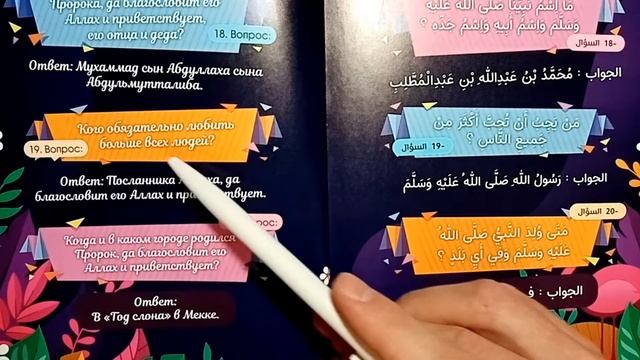 Пророка, да благословит его
Аллах и приветствует,
его отца и деда?
18. Вопрос:
Ответ: Мухаммад сын Абдуллаха сына
Абдульмутталиба.
Кого обязательно любить
больше всех людей?
19. Вопрос:
Ответ: Посланника да
благословит его Аллах и
Когда и в каком городе родился
Пророк, да благословит его
Аллах и приветствует?
Ответ:
В «Год слона» в Мекке.
مَا اِسْمُ نَبِيِّنَا صَلَّى اللهُ عَلَيْهِ
وَسَلَّمَ وَاِسْمُ أَبِيهِ وَاِسْمُ جَدِّهِ ؟
18- السؤال
الجواب : مُحَمَّدُ بْنُ عَبْدِاللهِ بْنِ عَبْدِالْمُطَّلِبِ
مَنْ يَجِبُ أَنْ تُحِبَّ أَكْثَرَ مِنْ
جَمِيعِ النَّاسِ ؟
19- السؤال
الجواب : رَسُولُ اللهِ صَلَّى اللهُ عَلَيْهِ وَسَلَّمَ
20- السؤال
مَتَى وُلِدَ النَّبِيُّ صَلَّى اللهُ
عَلَيْهِ وَسَلَّمَ وَفِي أَيِّ بَلَدٍ ؟
الجواب :